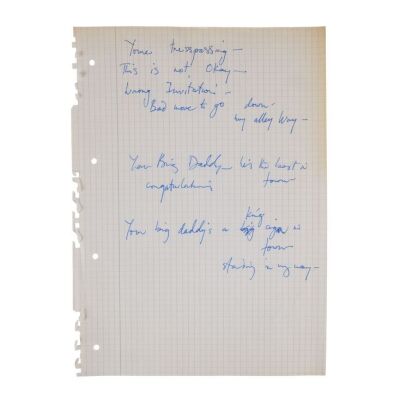 Youre tresspassing –
This is not Okay –
Wrong Invitation –
Bad move to go down –
my alley Way –
Your Big Daddy in
congratulations town
King
Your big daddy's a big in
town
standing in my way –